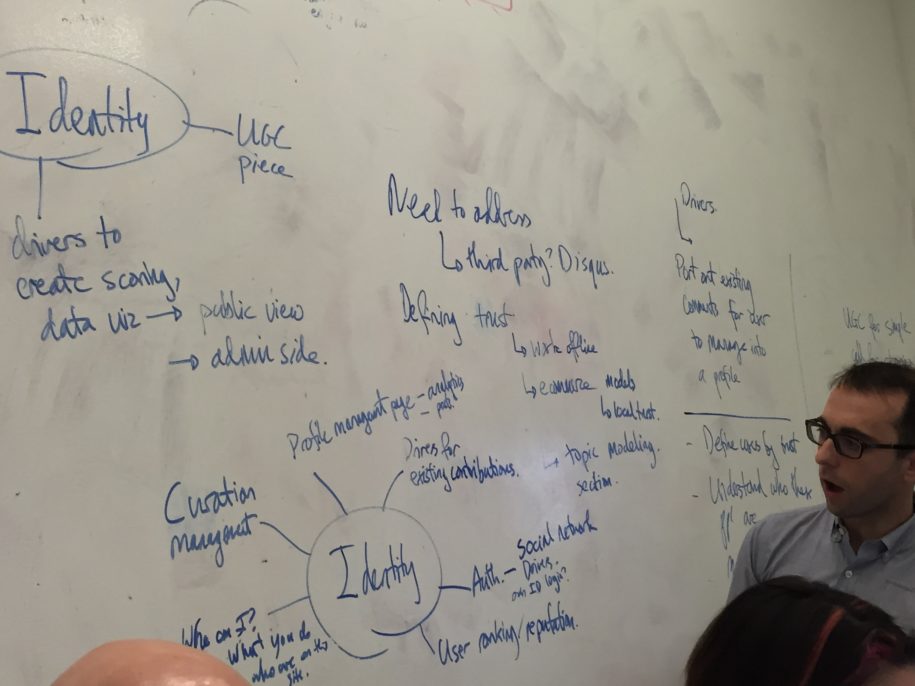 Identity
UGC
piece
drivers to
create scoring,
data viz → public view
→ admin side.
Need to address
↳ third party? Disqus.
Defining trust
↳ write offline
↳ ecommerce models
↳ local trust.
→ topic modeling
section.
Drivers
existing
comments for user
to manage into
a profile
- Define users by trust
- Understand who these
ppl are
UGC for simple
Profile managemt page - analytics
Drives for
existing contributions.
Curation
managemt
Identity
Auth. - Social network
Drives.
own ID login?
User ranking/reputation.
Who am I?
What you do
who are on the
site.